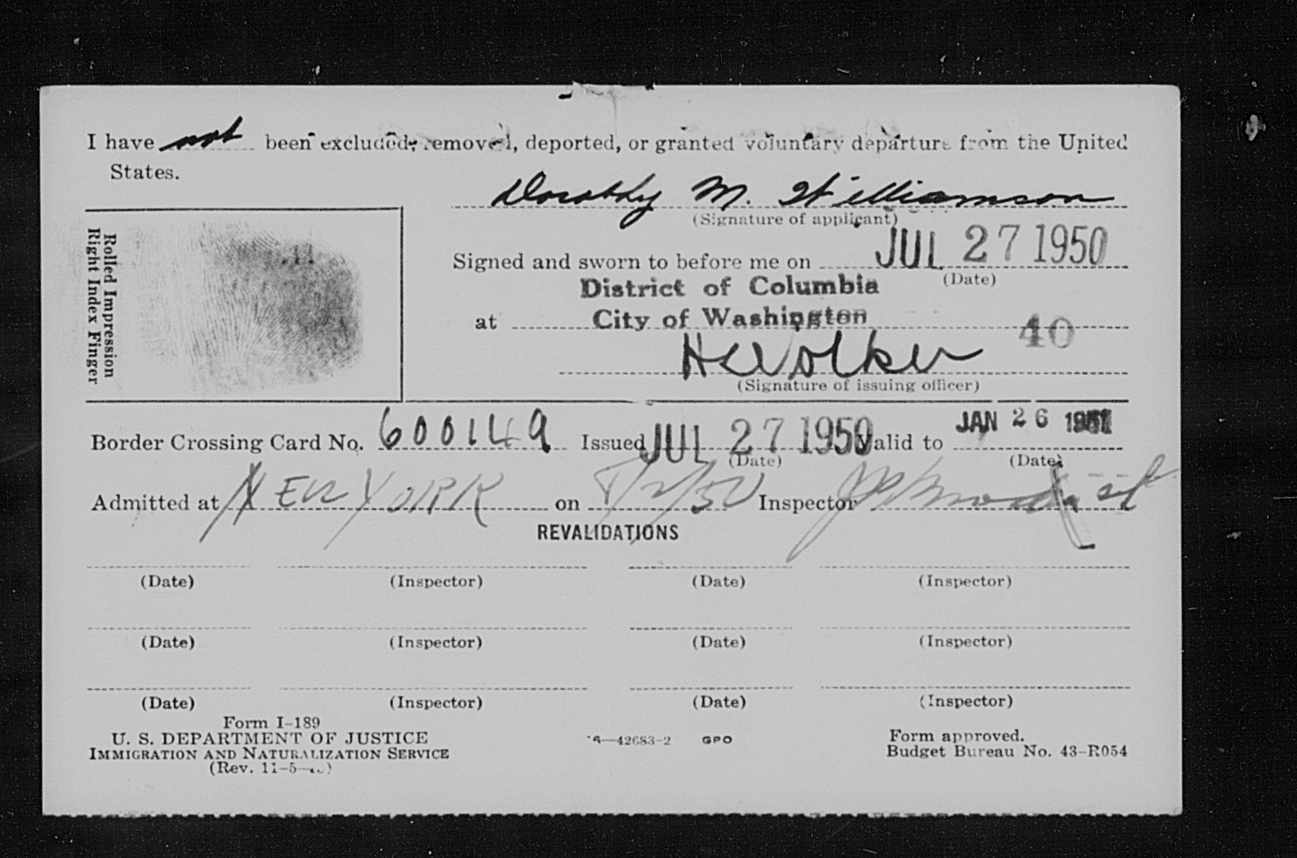 I have not been excluded, removed, deported, or granted voluntary departure from the United
States.
Dorothy M. Williamson
(Signature of applicant)
Rolled Impression
Right Index Finger
Signed and sworn to before me on JUL 27 1950
(Date)
District of Columbia
at City of Washington
40
(Signature of issuing officer)
Border Crossing Card No. 600149 Issued JUL 27 1950 Valid to JAN 26 1951
(Date) (Date)
Admitted at NEW YORK on /2/50 Inspector
REVALIDATIONS
(Date) (Inspector) (Date) (Inspector)
(Date) (Inspector) (Date) (Inspector)
(Date) (Inspector) (Date) (Inspector)
Form I-189
U. S. DEPARTMENT OF JUSTICE
IMMIGRATION AND NATURALIZATION SERVICE
(Rev. 11-5-
42683-2 GPO
Form approved.
Budget Bureau No. 43-R054